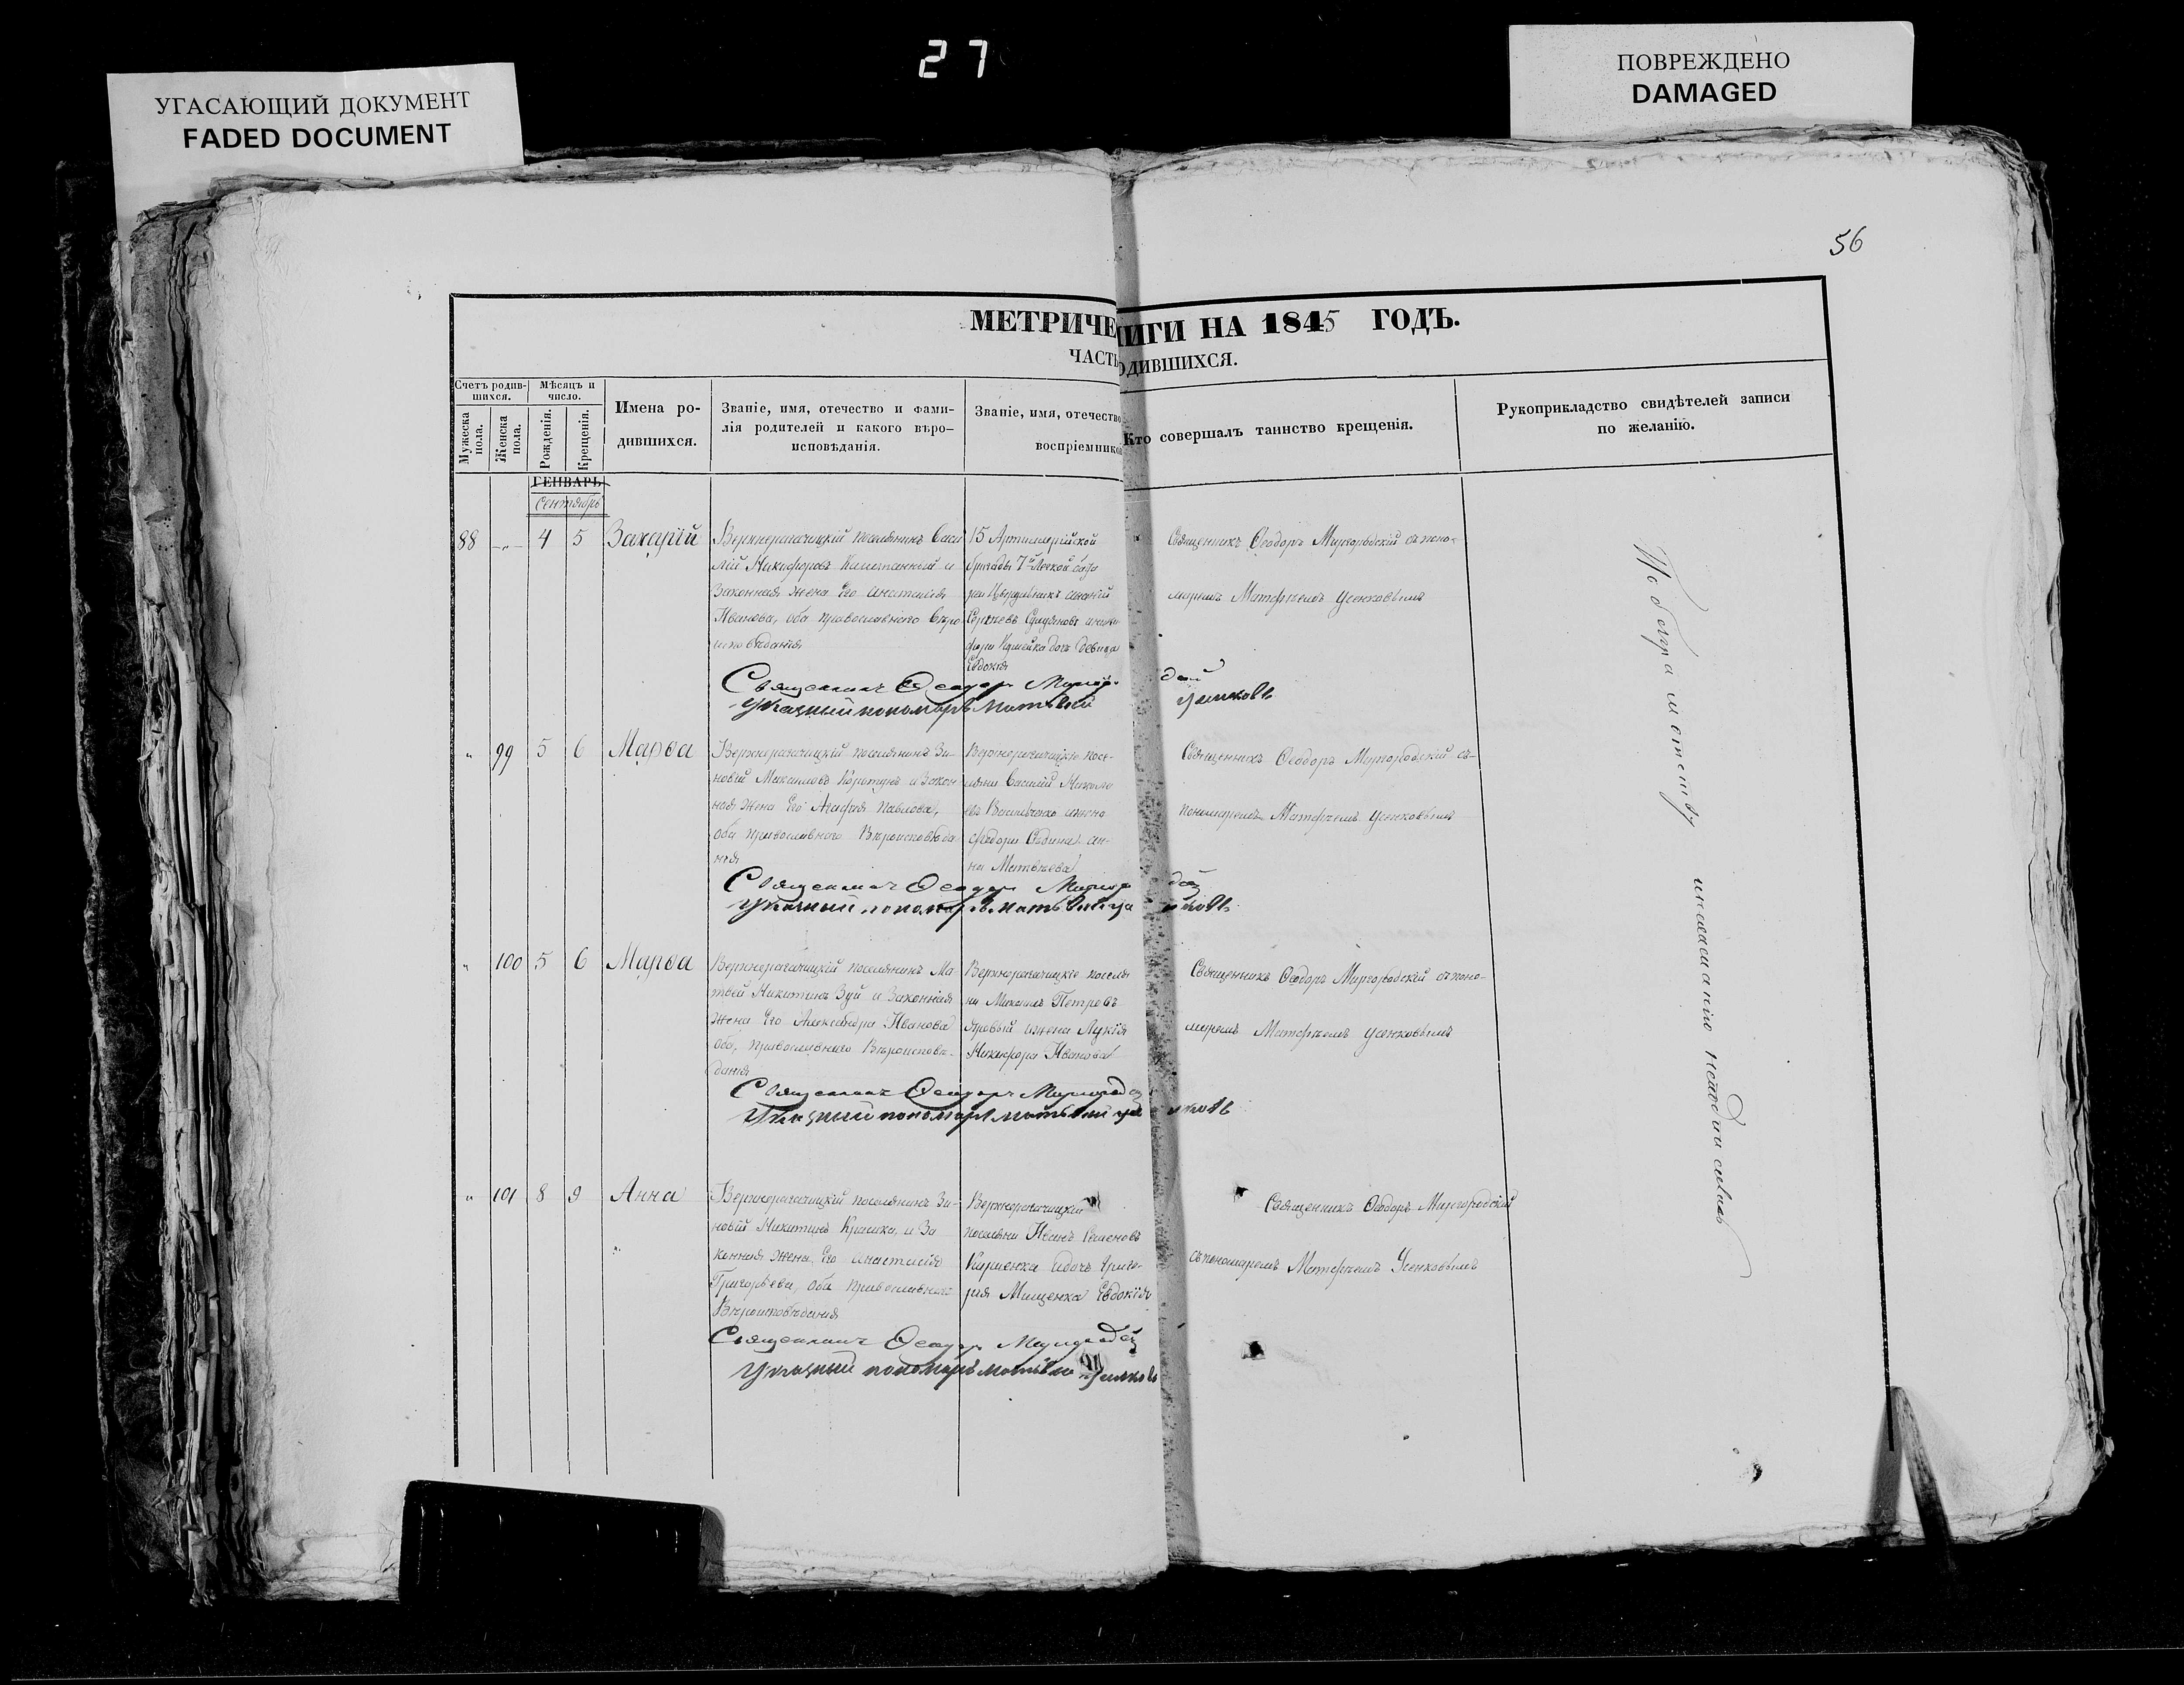 27
УГАСАЮЩИЙ ДОКУМЕНТ
FADED DOCUMENT
ПОВРЕЖДЕНО
DAMAGED
56
МЕТРИЧЕ
ИГИ НА 1845 ГОДЪ.
ЧАСТЬ
ОДИВШИХСЯ.
Счетъ родив-
шихся.
Мужеска
пола.
Женска
пола.
Мѣсяцъ и
число.
Рожденія.
Крещенія.
Имена ро-
дившихся.
Званіе, имя, отечество и фами-
лія родителей и какого вѣро-
исповѣданія.
Званіе, имя, отечество
воспріемнико
Кто совершалъ таинство крещенія.
Рукоприкладство свидѣтелей записи
по желанію.
ГЕНВАРЬ
Сентябрь
88 4 5 Захарій
Верхнерогачицкій поселянинъ Васи
лій Никифоровъ и
Законная жена Его Анастасія
Иванова, оба православнаго Вѣро
исповѣданія
15 Артилерійской
бригады 7й Легкой бата
Сергѣевъ
дочь девица
Евдокія
Священникъ Ѳеодоръ Миргородскій съ поно-
маремъ Матфѣемъ Усенковымъ
Священникъ Ѳеодоръ
Указный пономарь Матвѣй Усенковъ
" 99 5 6 Марѳа
Верхнерогачицкій поселянинъ Зи-
новій Максимовъ Коротунъ и Закон
ная жена Его Агафія Павлова,
оба православнаго Вѣроисповѣда
нія
Верхнерогачицкіе посе-
ляне Василій Николае
въ Васильченко
Феодора Ан-
на Матвѣева
Священникъ Ѳеодоръ Миргородскій съ
пономаремъ Матфѣемъ Усенковымъ
Священникъ Ѳеодоръ
Указный пономарь Матвѣй Усенковъ
" 100 5 6 Марѳа
Верхнерогачицкій поселянинъ Ма
твей Никитинъ Зуй и Законная
жена Его Александра Иванова
оба, православнаго Вѣроисповѣ-
данія
Верхнерогачицкіе поселя
не Михаилъ Петровъ
Яровый и жена Лукія
Никифора Иванова
Священникъ Ѳеодоръ Миргородскій съ поно-
маремъ Матфѣемъ Усенковымъ
Священникъ Ѳеодоръ Миргородскій
Указный пономарь Матвѣй Усенковъ
" 101 8 9 Анна
Верхнерогачицкій поселянинъ Зи-
новій Никитинъ и За
конная жена Его Анастасія
Григорьева, оба православнаго
Вѣроисповѣданія
Верхнерогачицкій
поселянинъ Иванъ Семеновъ
Кириенко и дочь Григо-
рія Мищенка Евдокія
Священникъ Ѳеодоръ Миргородскій
съ пономаремъ Матфѣемъ Усенковымъ
Священникъ Ѳеодоръ Миргородскій
Указный пономарь Матвѣй Усенковъ
По безграмотству